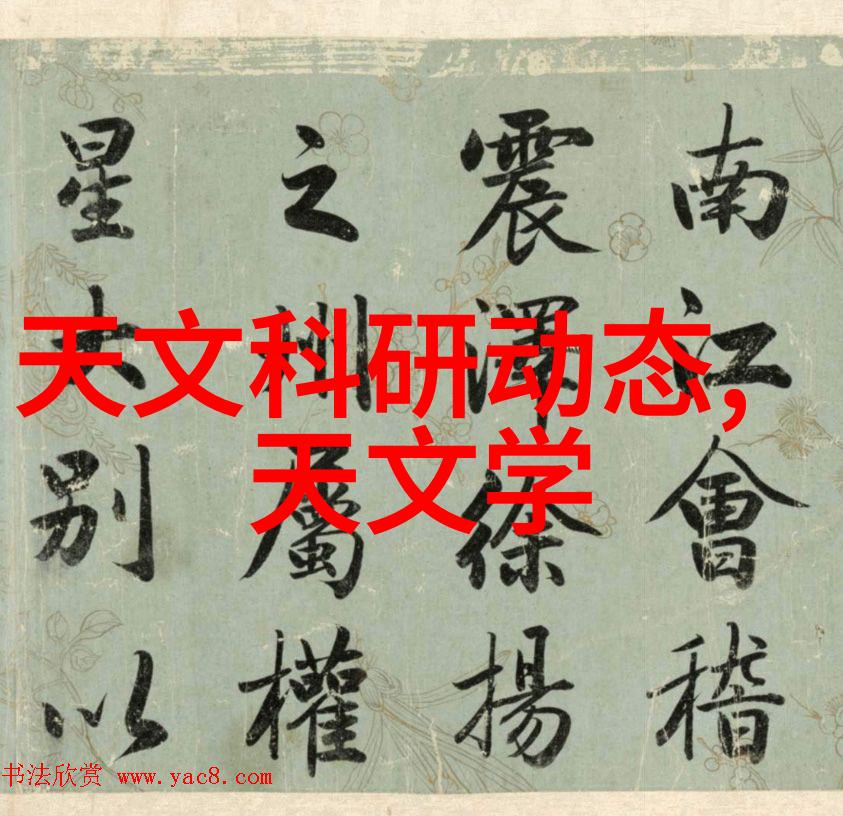 南江會稽
震澤徐揚
之州屬權
星大别以
天文科研动态,
天文学
书法欣赏 www.yac8.com